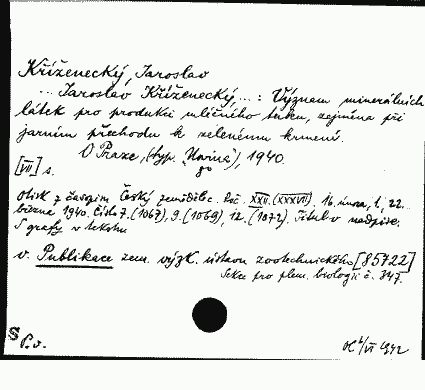 Kříženecký, Jaroslav
... Jaroslav Kříženecký, ... : Význam minerálních
látek pro produkci mléčného tuku, zejména při
jarním přechodu k zelenému krmení.
V Praze, (typ. "Narina"), 1940.
8°
[VII] s.
Otisk z časopisu Český zemědělec. Roč. XXII. (XXXVII). 16. února, 1., 22. ..
března 1940. Čísla 7. (1067), 9. (1069), 12. (1072). Titul v nadpise.
S grafy v textu
v. Publikace zem. výzk. ústavu zootechnického [85722]
Sekce pro plem. biologii č. 347.
S
P.v.
VI 1942